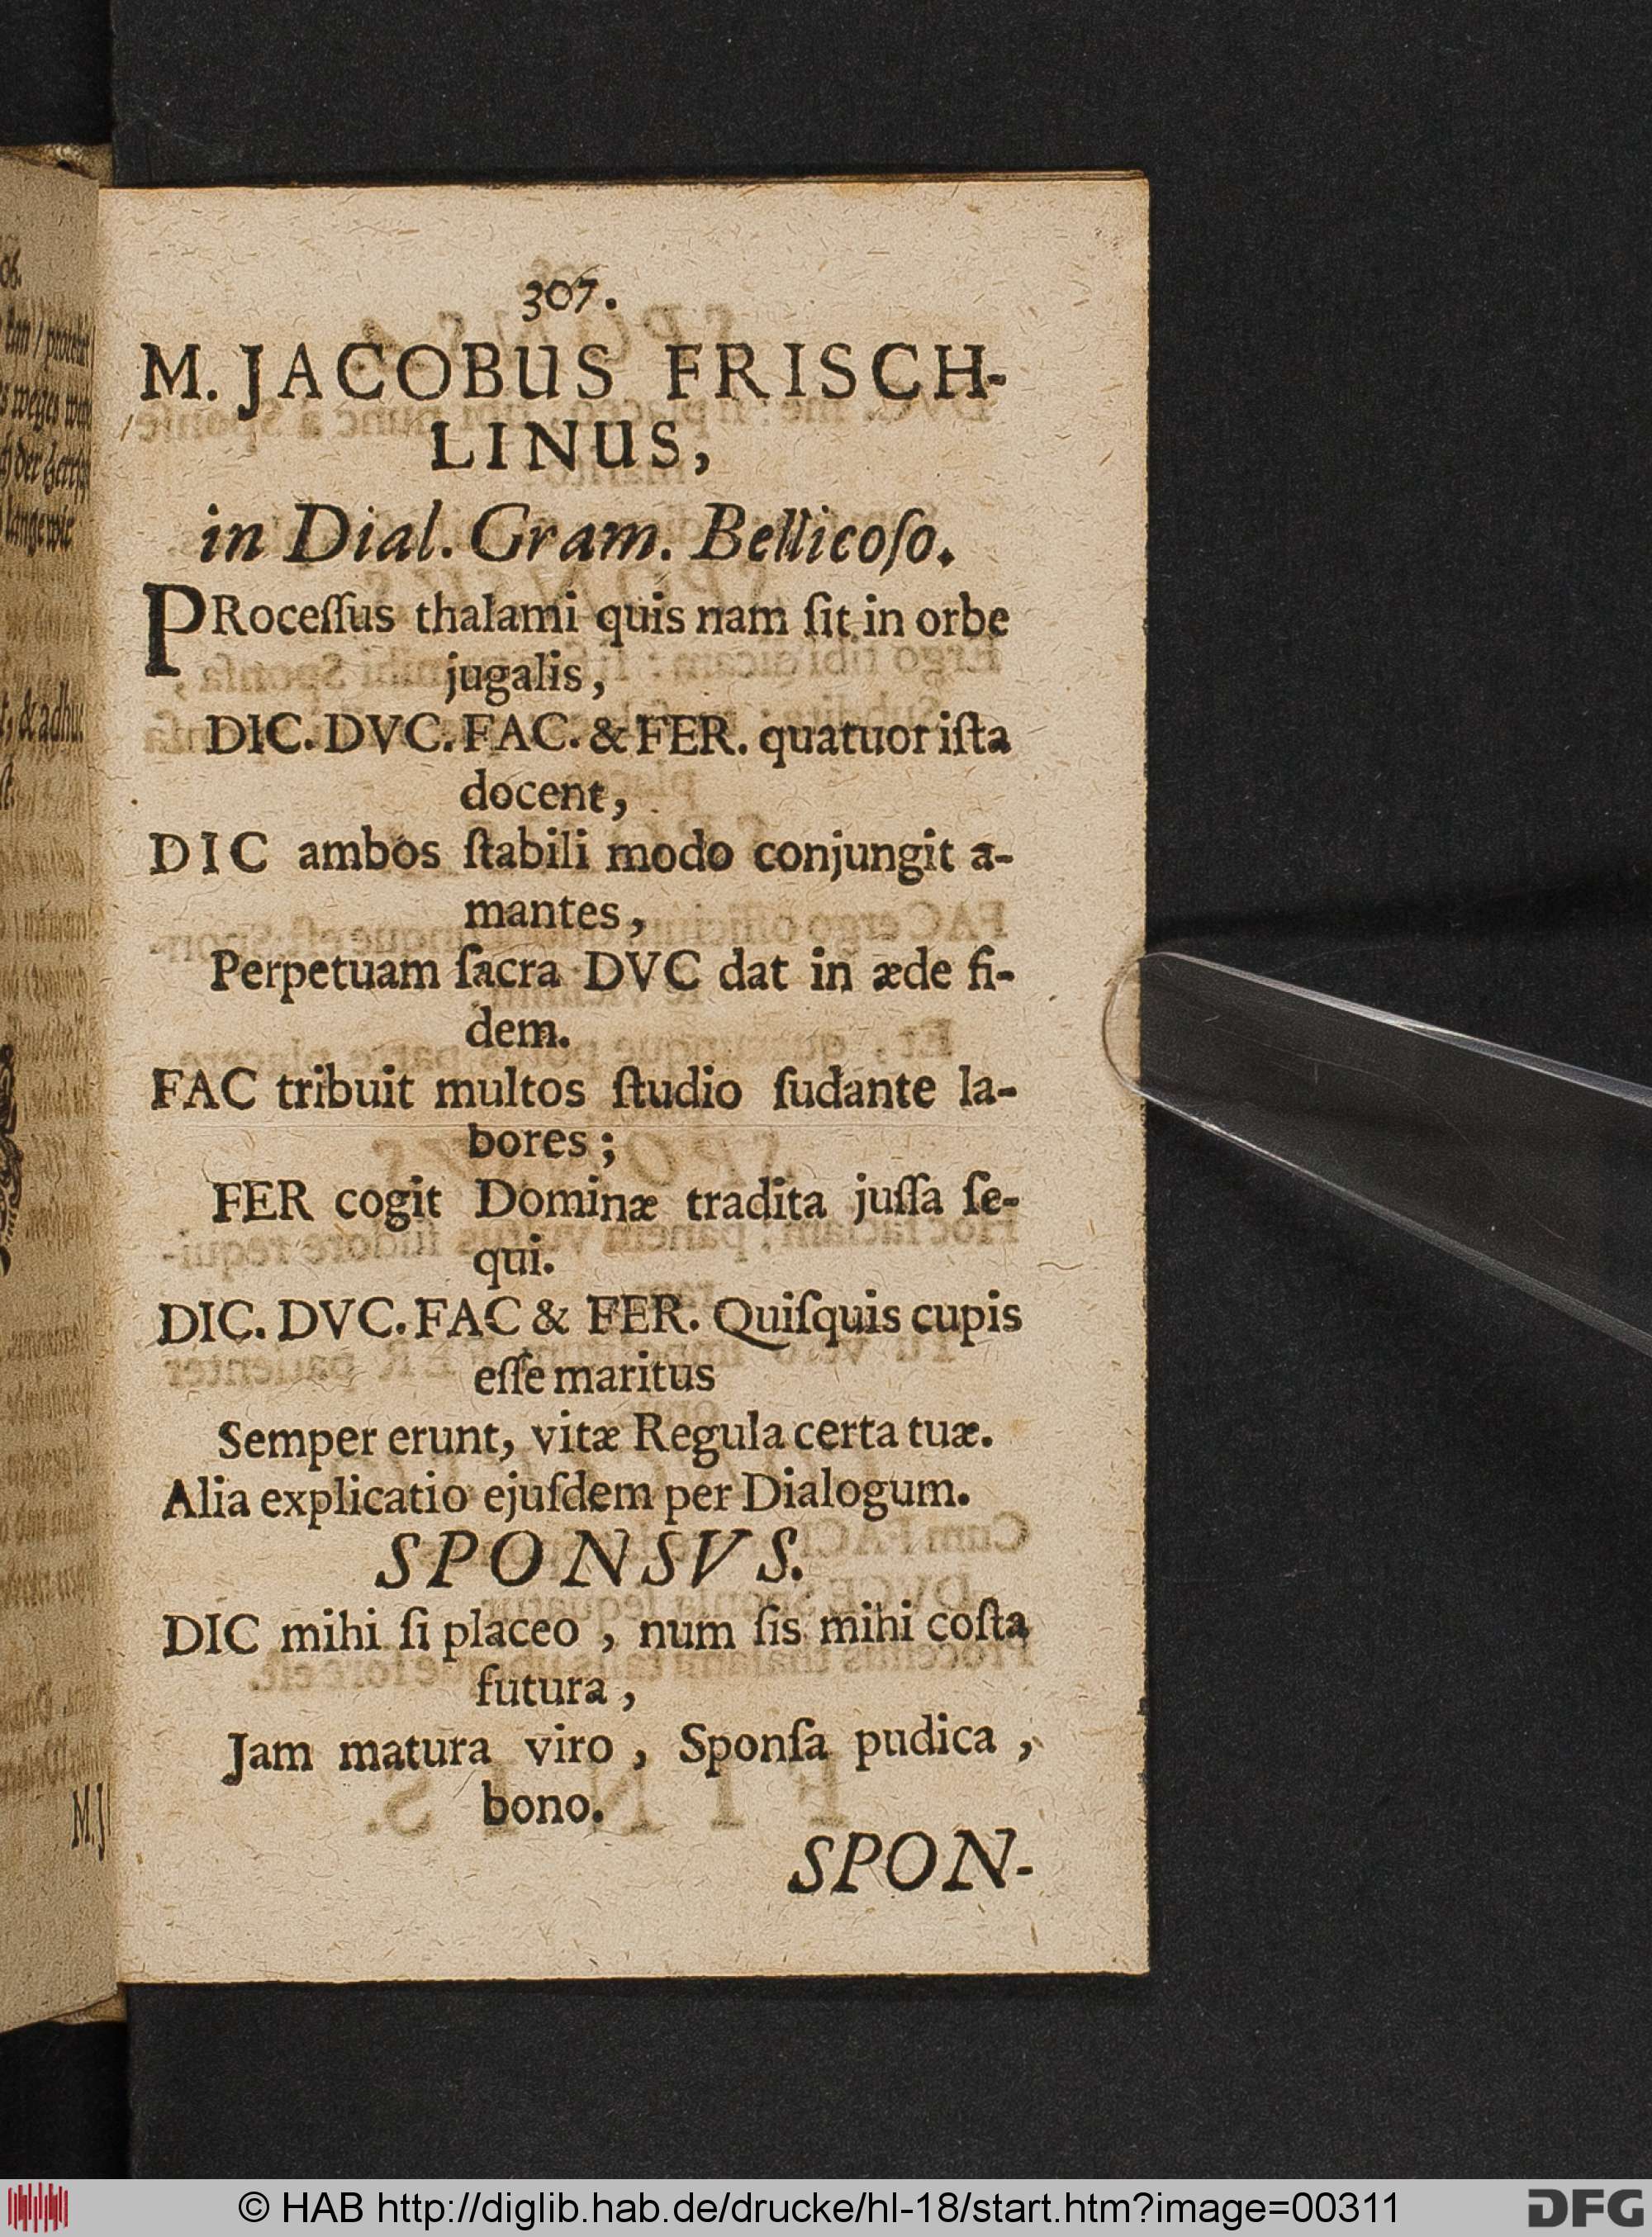 307.
M. JACOBUS FRISCH-
LINUS,
in Dial. Gram. Bellicoſo.
PRoceſſus thalami quis nam ſit in orbe
jugalis,
DIC. DVC. FAC. & FER. quatuor iſta
docent,
DIC ambos ſtabili modo conjungit a-
mantes,
Perpetuam ſacra DVC dat in æde fi-
dem.
FAC tribuit multos ſtudio ſudante la-
bores;
FER cogit Dominæ tradita juſſa ſe-
qui.
DIC. DVC. FAC & FER. Quiſquis cupis
eſſe maritus
Semper erunt, vitæ Regula certa tuæ.
Alia explicatio ejuſdem per Dialogum.
SPONSVS.
DIC mihi ſi placeo, num ſis mihi coſta
futura,
Jam matura viro, Sponſa pudica,
bono.
SPON-
© HAB http://diglib.hab.de/drucke/hl-18/start.htm?image=00311
DFG